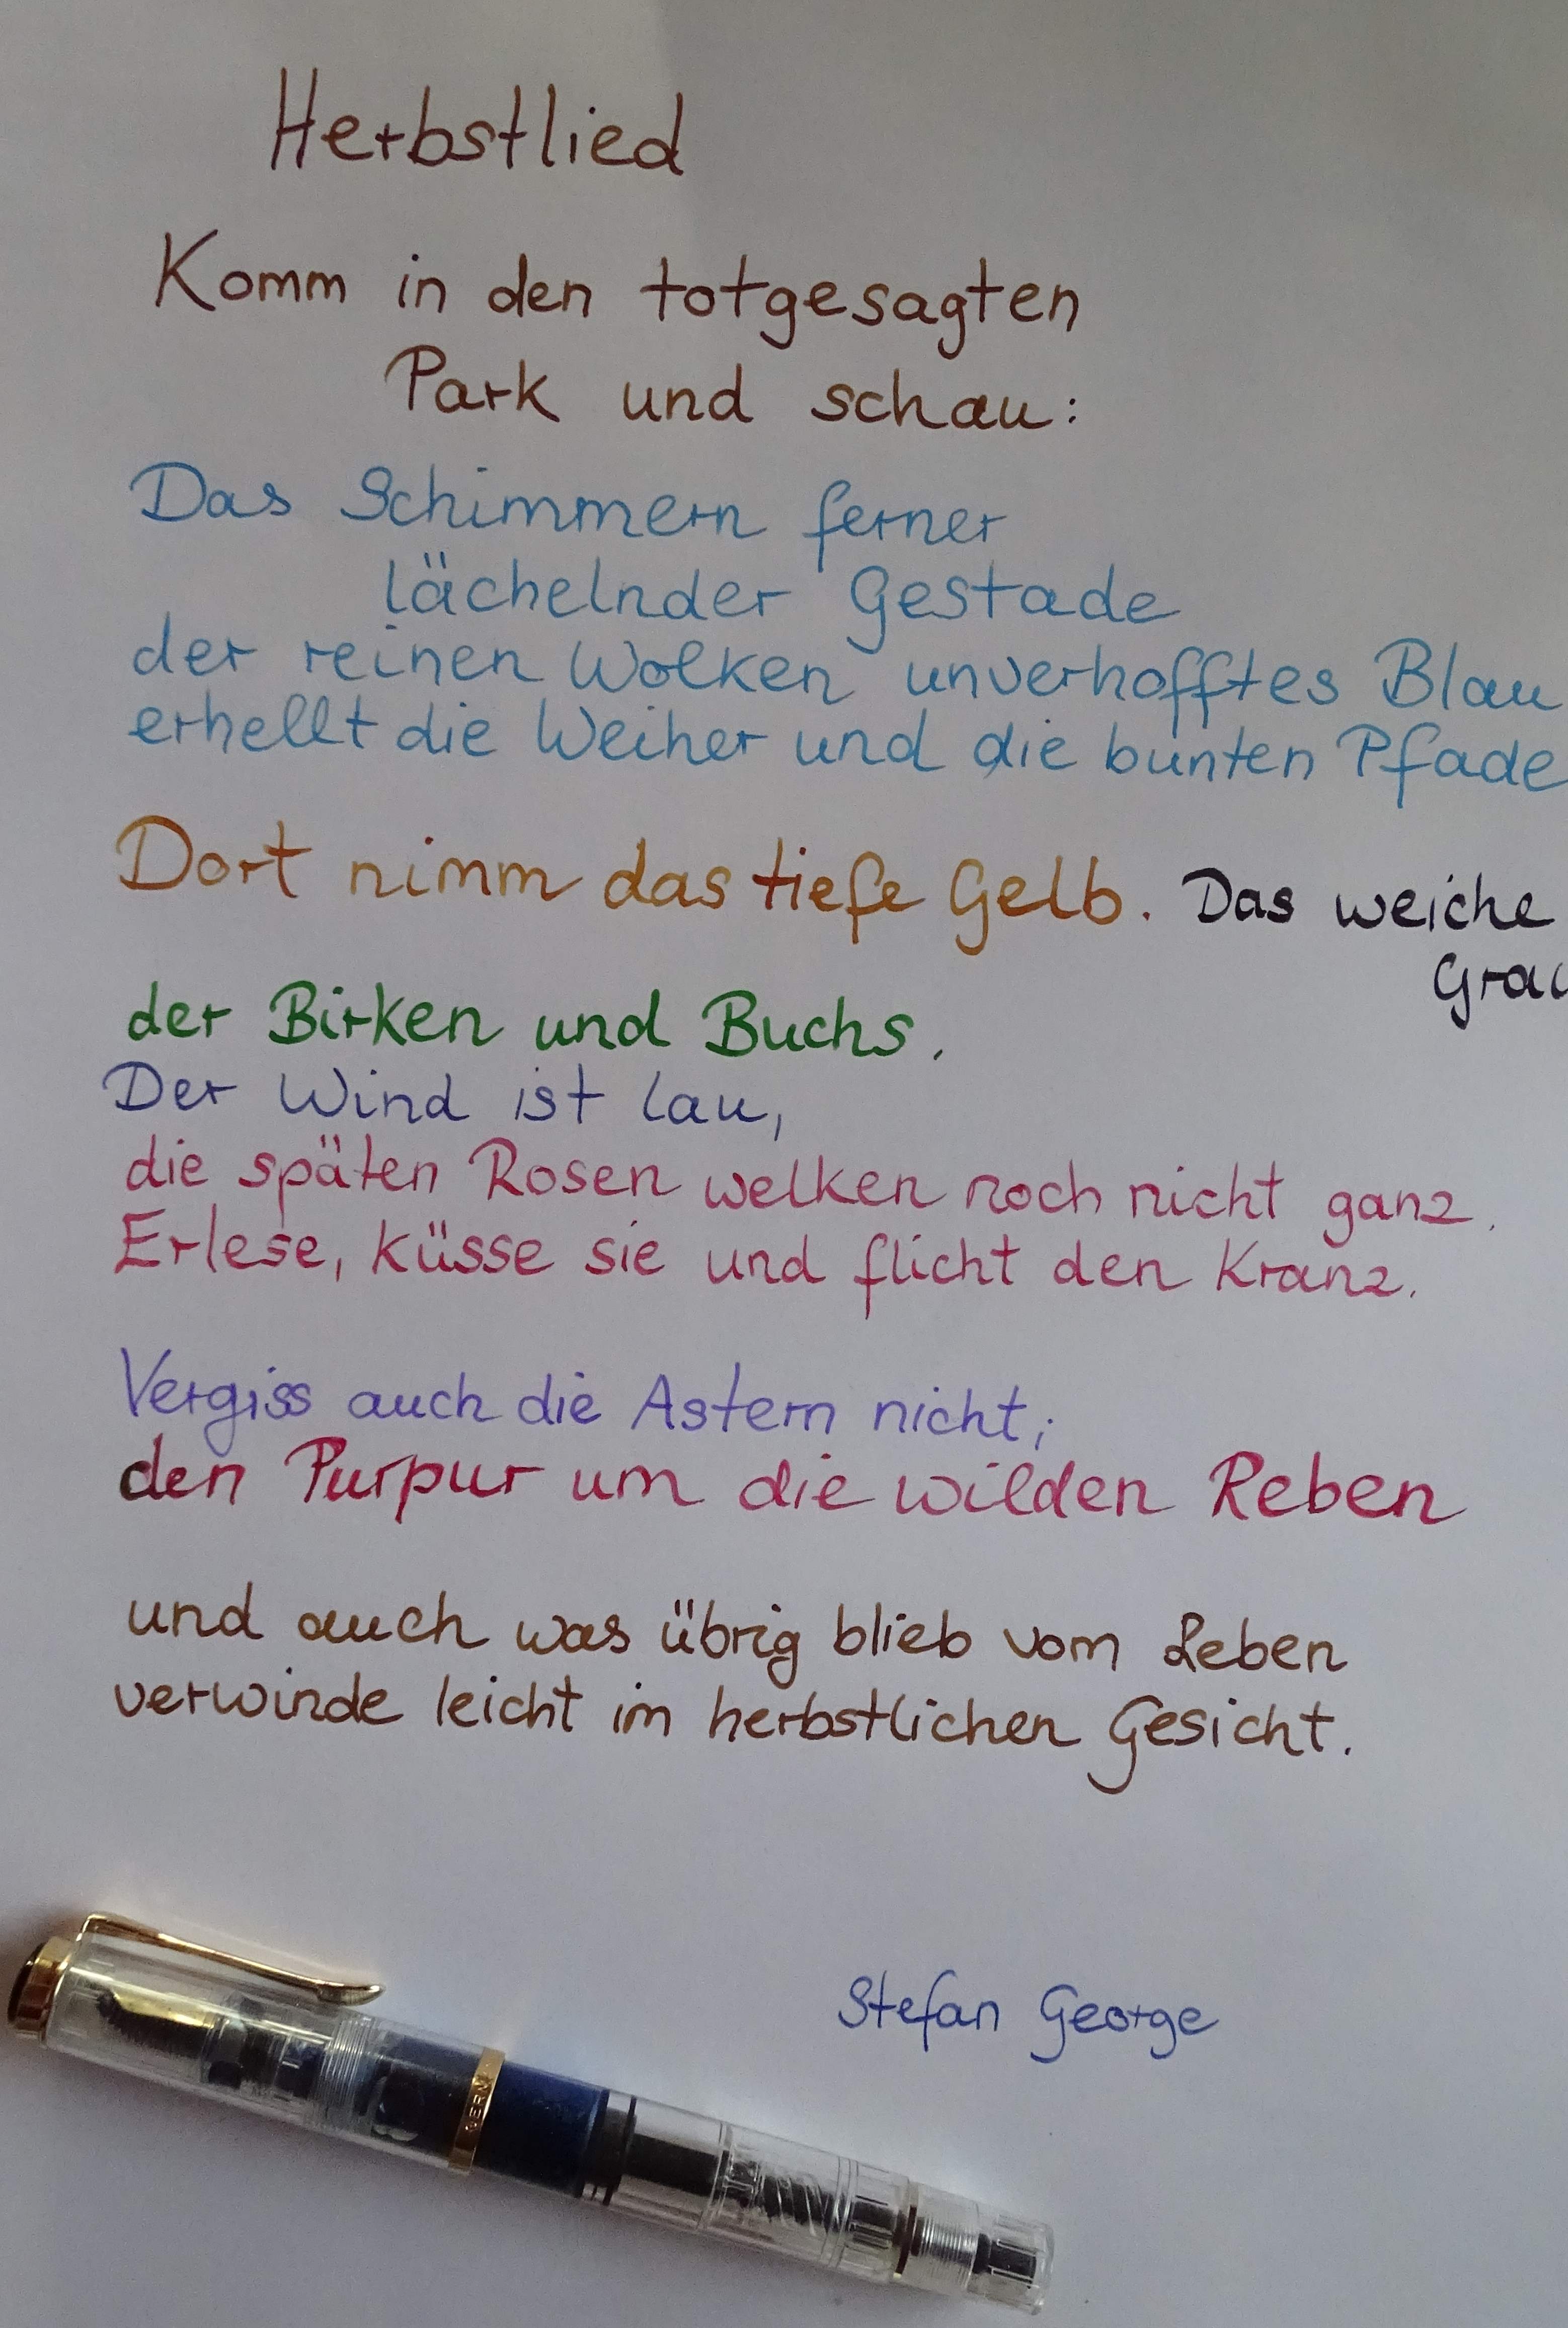 Herbstlied
Komm in den totgesagten
Park und schau:
Das Schimmern ferner
lächelnder Gestade
der reinen Wolken unverhofftes Blau
erhellt die Weiher und die bunten Pfade
Dort nimm das tiefe Gelb. Das weiche
Grau
der Birken und Buchs.
Der Wind ist lau,
die späten Rosen welken noch nicht ganz.
Erlese, küsse sie und flicht den Kranz.
Vergiss auch die Astern nicht;
den Purpur um die wilden Reben
und auch was übrig blieb vom Leben
verwinde leicht im herbstlichen Gesicht.
Stefan George